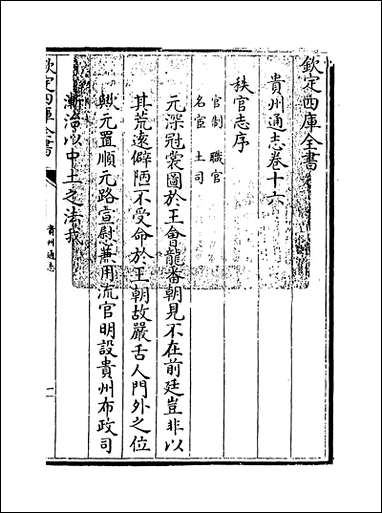 欽定四庫全書
貴州通志卷十六
秩官志序
官制 職官
名宦 土司
元深冠裳圖於王會龍番朝見不在前廷豈非以
其荒遠僻陋不受命於王朝故嚴舌人門外之位
歟元置順元路宣慰兼用流官明設貴州布政司
漸治以中土之法我
欽定四庫全書
貴州通志
一